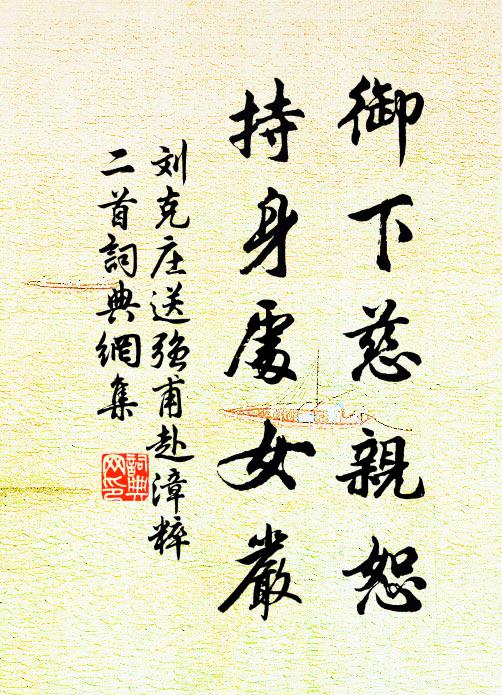 御下慈親恕
持身處女嚴
刘克庄送強甫赴漳粹
二首詞典網集
詞典网印